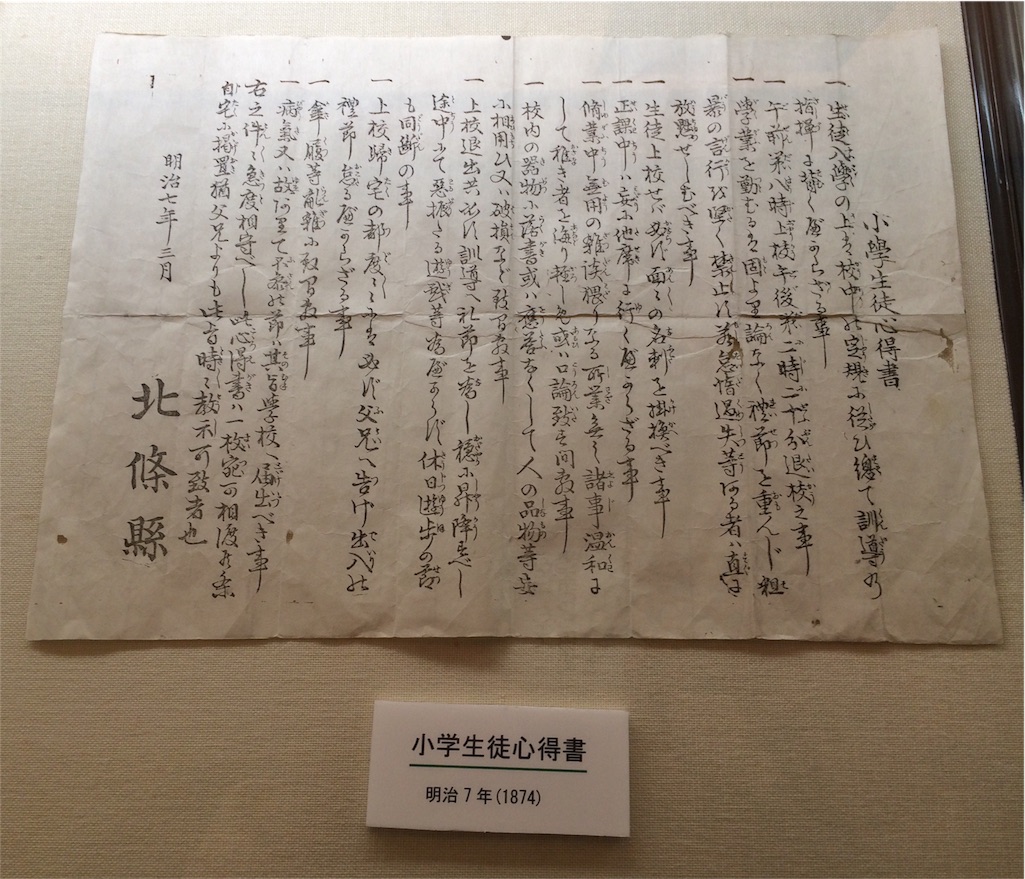 小學生徒心得書
一 生徒入學の上は校中の定規に従ひ總て訓導の
指揮に背く可からざる事
一 午前第八時上校午後第二時二十分退校之事
一 學業を勤むるは固より論なく禮節を重んじ粗
暴の言行を堅く禁止し若怠惰過失等ある者ハ直に
放
せしむべき事
一 生徒上校せバ必ず面々の名刺を掛換べき事
一 正課中ハ妄に他席に行く可からざる事
一 脩業中無用の雜談猥りなる所業なく諸事温和に
して稚き者を侮り
或ハ口論致す間敷事
一 校内の器物に落書或ハ
人の品物等妄
に相用ひ又ハ破損など致間敷事
一 上校退出共必ず訓導へ礼節を
し穏に昇降すべし
途中にて惡
遊戯等為可からず休日遊歩の節
も同断の事
一 上校歸宅の都度々々にハ必ず父兄へ告げ出入の
禮節
怠る可からざる事
一
等
致間敷事
一 病氣又ハ故ありて不参の節ハ其旨學校へ届出べき事
右之件々急度相守べし此心得書ハ一枚宛可相渡候条
自宅に掲置猶父兄よりも此旨時々教示可致者也
明治七年 三月
北條縣
小学生徒心得書
明治7年(1874)